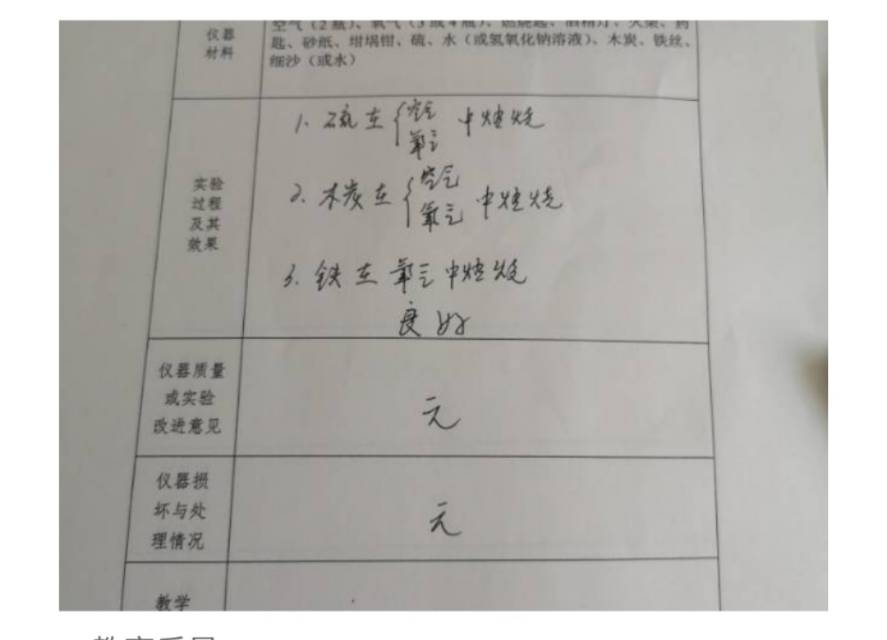 仪器
材料
空气（2瓶）、氧气（3或4瓶）、燃烧匙、酒精灯、火柴、药
匙、砂纸、坩埚钳、硫、水（或氢氧化钠溶液）、木炭、铁丝、
细沙（或水）
实验
过程
及其
效果
1. 硫在{空气
氧气 中燃烧
2. 木炭在{空气
氧气 中燃烧
3. 铁在氧气中燃烧
良好
仪器质量
或实验
改进意见
无
仪器损
坏与处
理情况
无
教学